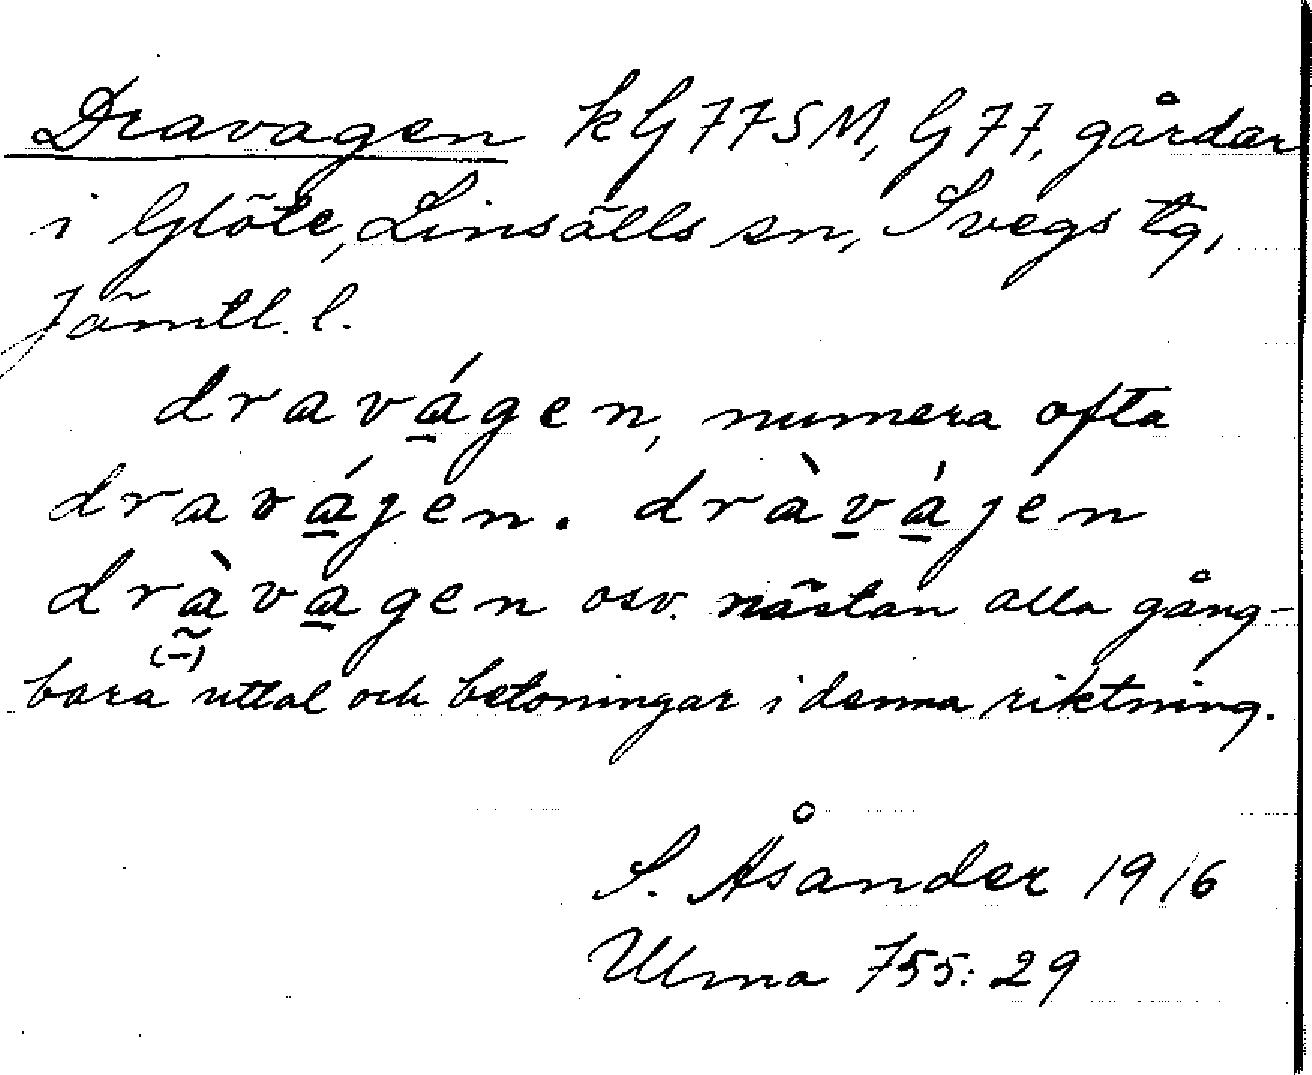 Dravagen kG77SM, G77, gårdar
i Glöte, Linsälls sn, Svegs tg,
Jämtl. l.
dravágen, numera ofta
dravájen. dràvájen
dràvagen osv. nästan alla gång-
(~)
bara uttal och betoningar i denna riktning.
S. Åsander 1916
Ulma 755:29